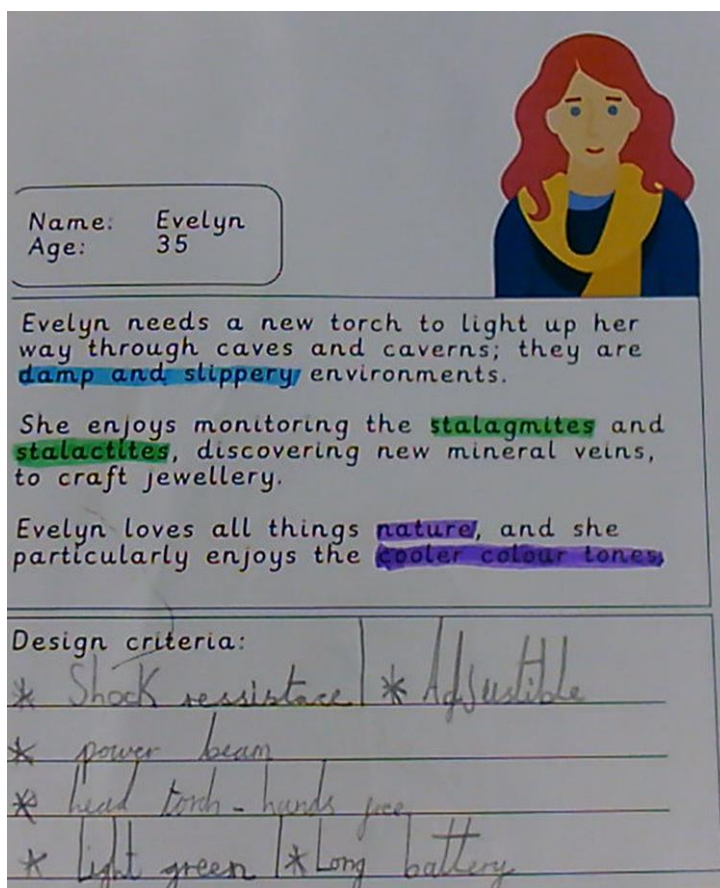 Name: Evelyn
Age: 35
Evelyn needs a new torch to light up her
way through caves and caverns; they are
damp and slippery environments.
She enjoys monitoring the stalagmites and
stalactites, discovering new mineral veins,
to craft jewellery.
Evelyn loves all things nature, and she
particularly enjoys the cooler colour tones.
Design criteria:
* Shock ressistace * Adjustible
* power beam
* head torch - hands free
* Light green * Long battery